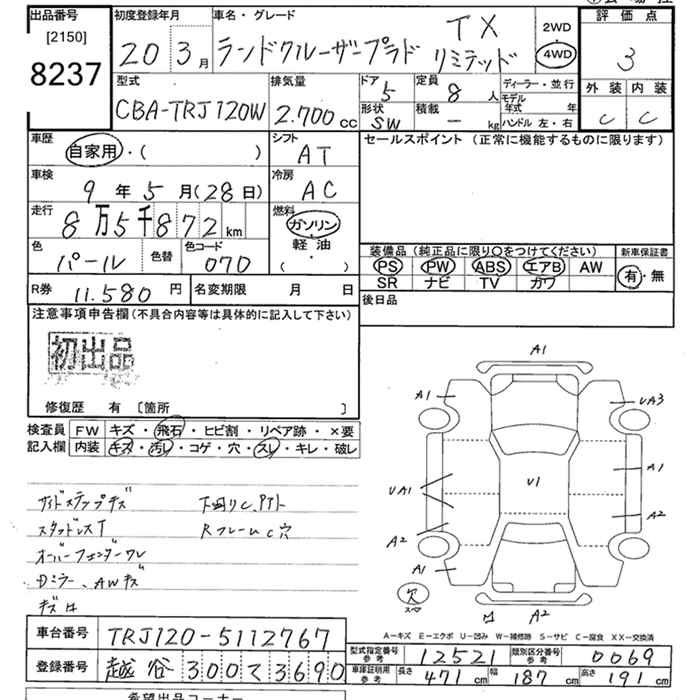 出品番号
[2150]
8237
初度登録年月
20 3月
車名・グレード
ランドクルーザープラド
TX
リミテッド
2WD
4WD
評価点
3
型式
CBA-TRJ120W
排気量
2.700cc
ドア
5
形状
SW
定員
8人
積載
- kg
ディーラー・並行
モデル年式 年
ハンドル 左・右
外装 内装
C C
車歴
自家用・( )
シフト
AT
セールスポイント (正常に機能するものに限ります)
車検
9年5月(28日)
冷房
AC
走行
8万5千872km
燃料
ガソリン
軽油
( ・ )
色
パール
色替
色コード
070
装備品(純正品に限り〇をつけてください)
PS PW ABS エアB AW
SR ナビ TV カワ
新車保証書
有・無
R券 11.580円
名変期限 月 日
後日品
注意事項申告欄(不具合内容等は具体的に記入して下さい)
初出品
修復歴 有 [箇所 ]
検査員 FW キズ・飛石・ヒビ割・リペア跡・×要
記入欄 内装 キズ・汚レ・コゲ・穴・スレ・キレ・破レ
サイドステップキズ
スタッドレスT
オーバーフェンダーワレ
Dミラー、AWキズ
下回りC、Pアト
RフレームC穴
A1
A1
UA3
A1
UA1
U1
A2
A2
A1
欠
スペア
A2
A-キズ E-エクボ U-凹み W-補修跡 S-サビ C-腐食 XX-交換済
車台番号 TRJ120-5112767
登録番号 越谷300て3690
型式指定番号 参考 12521
類別区分番号 参考 0069
車庫証明用 参考 長さ 471cm 幅 187cm 高さ 191cm
希望出品コーナー